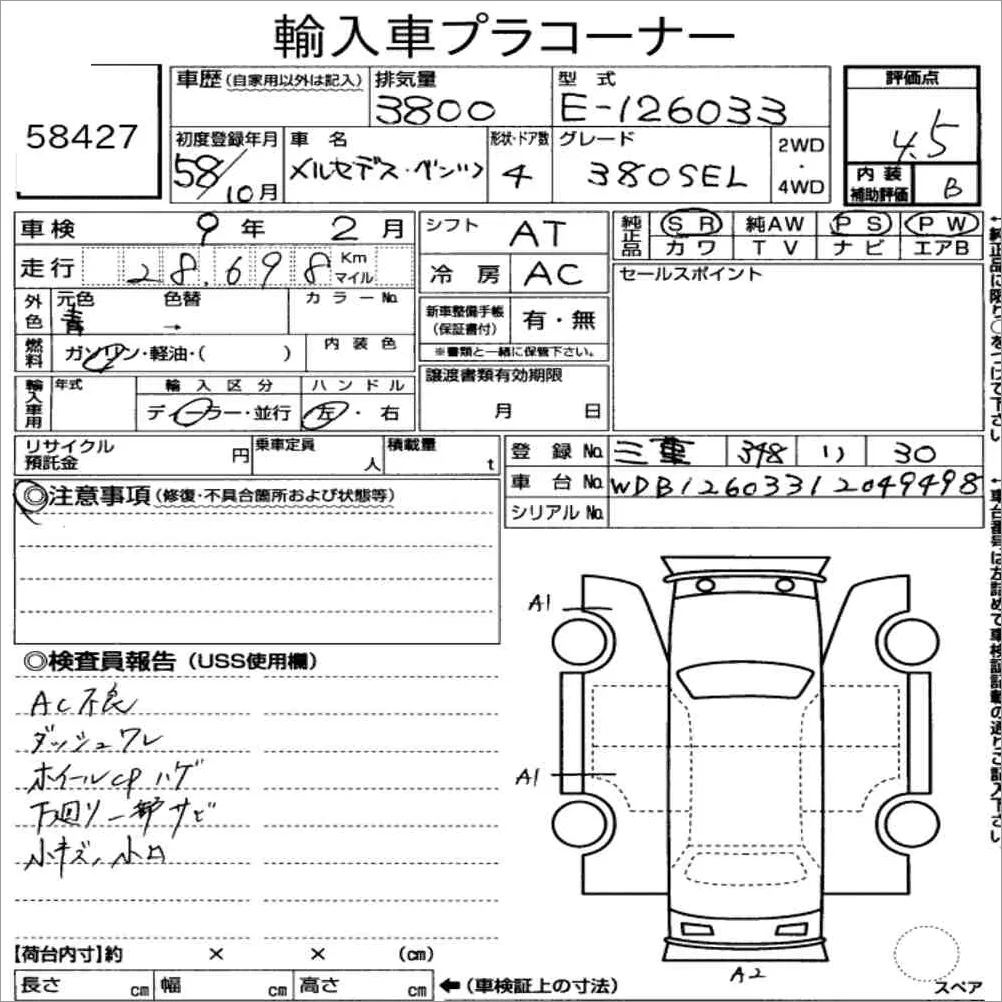 輸入車プラコーナー
58427
車歴 (自家用以外は記入) 排気量 3800 型 式 E-126033
評価点 4.5
初度登録年月 58/10月 車 名 メルセデス・ベンツ 形状・ドア数 4 グレード 380SEL 2WD ・ 4WD
内 装 補助評価 B
車検 9年 2月
走行 28,698 Km マイル
外色 元色 青 色替 → カラーNo.
燃料 ガソリン・軽油・( ) 内装色
輸入車用 年式 輸入区分 ディーラー・並行 ハンドル 左・右
シフト AT
冷房 AC
新車整備手帳 (保証書付) 有・無
※書類と一緒に保管下さい。
譲渡書類有効期限
月 日
純正品 SR 純AW PS PW
カワ TV ナビ エアB
セールスポイント
リサイクル預託金 円 乗車定員 人 積載量 t
登 録 No. 三重 348 リ 30
車 台 No. WDB12603312049498
シリアル No.
◎注意事項 (修復・不具合箇所および状態等)
◎検査員報告 (USS使用欄)
AC不良
ダッシュワレ
ホイールCPハゲ
下廻り一部サビ
小キズ、小凹
A1
A1
A2
スペア
【荷台内寸】約 × × (cm)
長さ cm 幅 cm 高さ cm ←(車検証上の寸法)
←純正品に限り○をつけて下さい
←車台番号は左詰めで車検証記載の通りご記入下さい